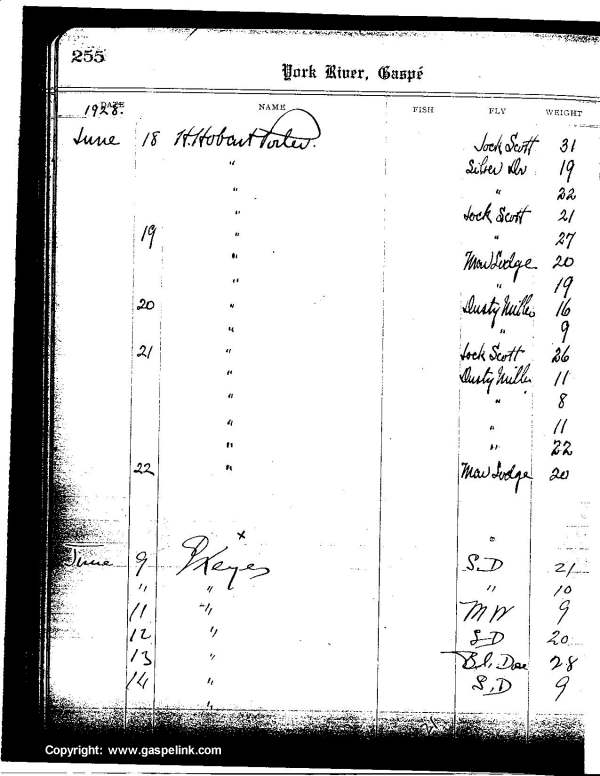 255
York River, Gaspé
DATE NAME FISH FLY WEIGHT
1928.
June 18 H. Hobart Porter. Jock Scott 31
" Silver Dr 19
" " 22
" Jock Scott 21
19 " " 27
" 20
" " 19
20 " Dusty Miller 16
" " 9
21 " Jock Scott 26
" Dusty Miller 11
" " 8
" " 11
" " 22
22 " 20
x "
June 9 Keyes S.D 21
" " " 10
11 " M W 9
12 " S D 20
13 " Bl. Doe 28
14 " S.D 9
"
Copyright: www.gaspelink.com